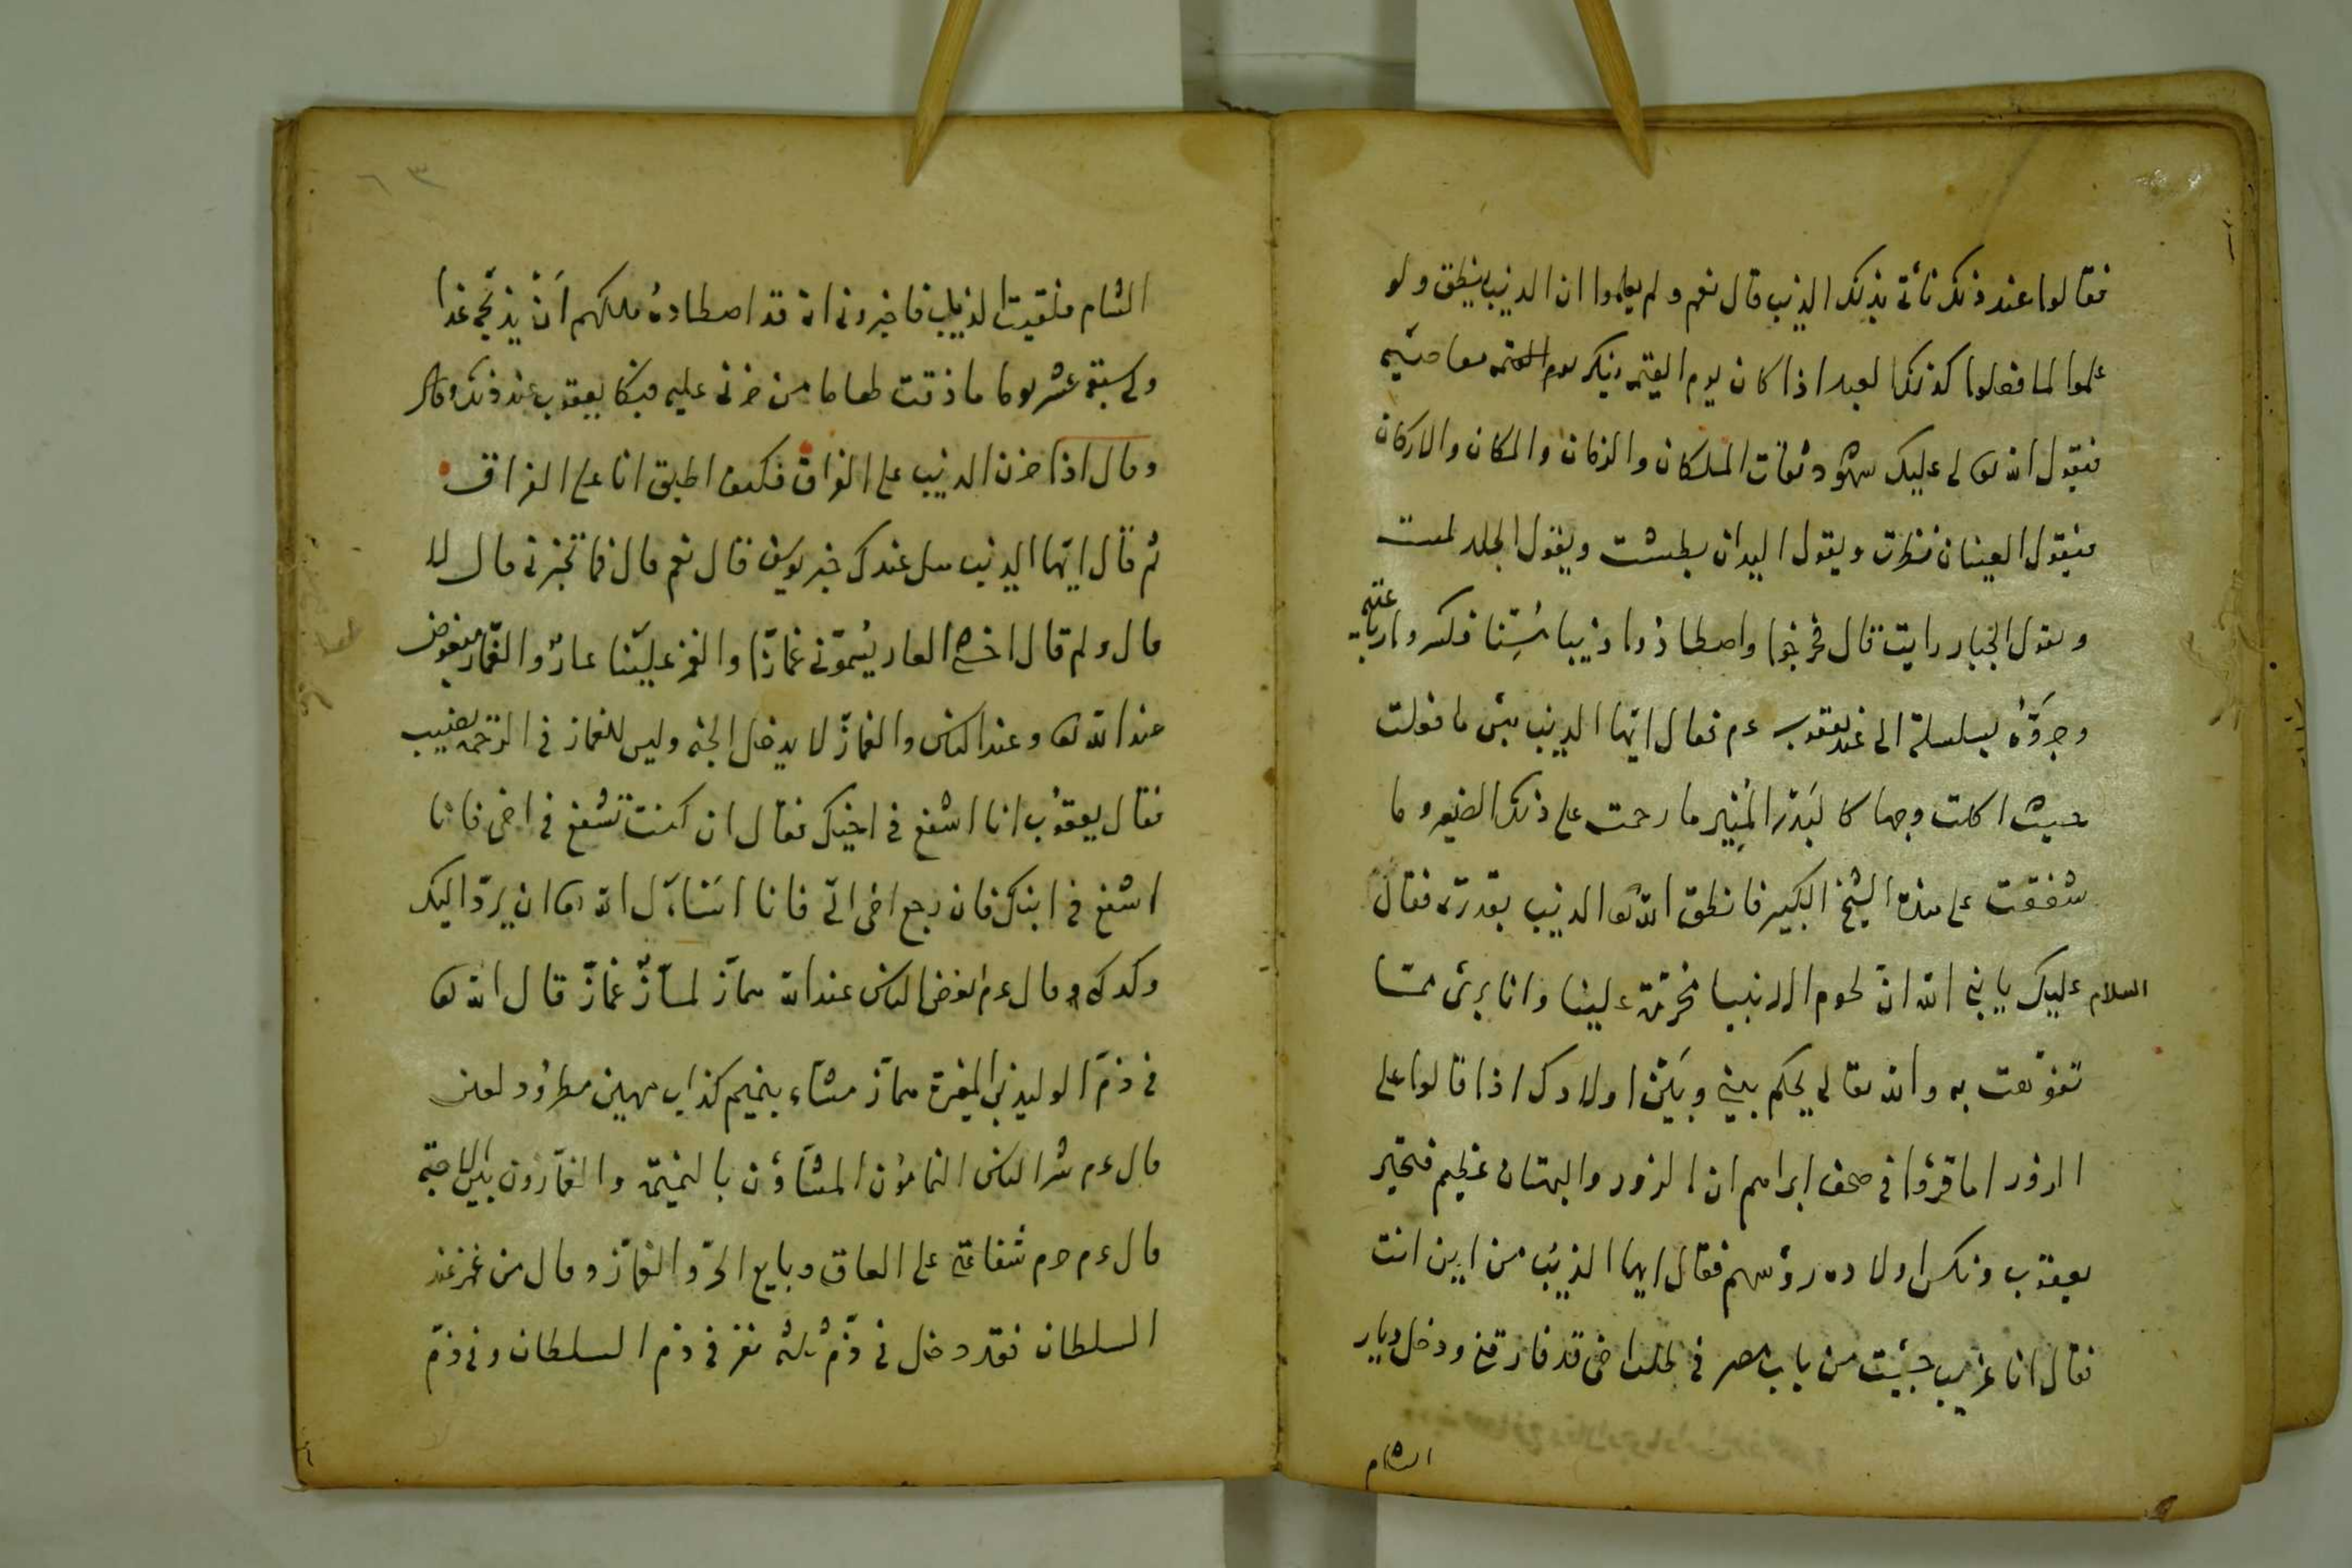 فقالوا عند ذلك نأتى بذلك الذيب قال نعم ولم يعلموا ان الذيب ينطق ولو
علموا لما فعلوا كذلك العبد اذا كان يوم القيمة ينكر معاصيه
فيقول الله تعالى عليك شهود ثقات الملكان والزمان والمكان والاركان
فيقول العينان نظرت ويقول اليدان بطشت ويقول الجلد لمست
ويقول الجبار رايت قال فخرجوا واصطادوا ذيبا مُسِنّا فكسروا رباعيته
وجرّوهُ بسلسلة الى عند يعقوب ءم فقال ايّها الذيب بئس ما فعلت
حيث اكلت وجها كالبَدْر المُنِير ما رحمت على ذلك الصغير وما
شفقت على هذه الشيخ الكبير فانطق الله تعا الذيب بقدرته فقال
السلام عليك يا نبى الله انّ لحوم الانبيا محرّمة علينا وانا برئ ممّا
تفوّهت به والله تعالى يحكم بينى وبَيْن اولادك اذا قالوا على
الزور اما قرؤا فى صحف ابراهيم ان الزور والبهتان عظيم فتحير
يعقوب ونكس اولاده رؤسهم فقال ايها الذئب من اين انت
فقال انا غريب جيئت من باب مصر فى طلب اخى قد فارقنى ودخل ديار
الشام
٦٣
الشام فلقيت الذياب فاخبرونى انه قد اصطاده ملكهم اَنْ يذبحَهُ غدا
ولى سبعة عشر يوما ما ذقت طعاما من حزنى عليه فبكا يعقوب عند ذلك وقال
وقال اذا حزن الذيب على الفراق فكيف اطيق انا على الفراق
ثم قال ايّها الذيب هل عندك خبر يوسف قال نعم قال فما تخبرنى قال لا
قال ولم قال اخشى العار يُسمّونى غمّازًا والغمز علينا عارٌ والغمّاز مبغوض
عند الله تعا وعند الناس والغمازّ لا يدخل الجنه وليس للغماز فى الرحمه نصيب
فقال يعقوبُ انا اشفع فى اخيك فقال ان كنت تشفع فى اخى فانا
اشفع فى ابنك فان رجع اخى الىّ فانا اسَاءل الله تعا ان يردّ اليك
ولدك وقال ءم ابغض الناس عند الله همّاز لمّاز غمازّ قال الله تعا
فى ذمّ الوليد بن المغيرة همّاز مشاء بنميم كذاب مهين مطرود لعين
قال ءم شر الناس النمامُون المشاؤن بالنميمة والغمّازون بين الاحبّة
قال ءم حرم شفاعتى على العاق وبايع الحرّ والغمّاز وقال من غمز عند
السلطان فقد دخل فى ذمّ ثلثة نفر فى ذم السلطان وفى ذمّ